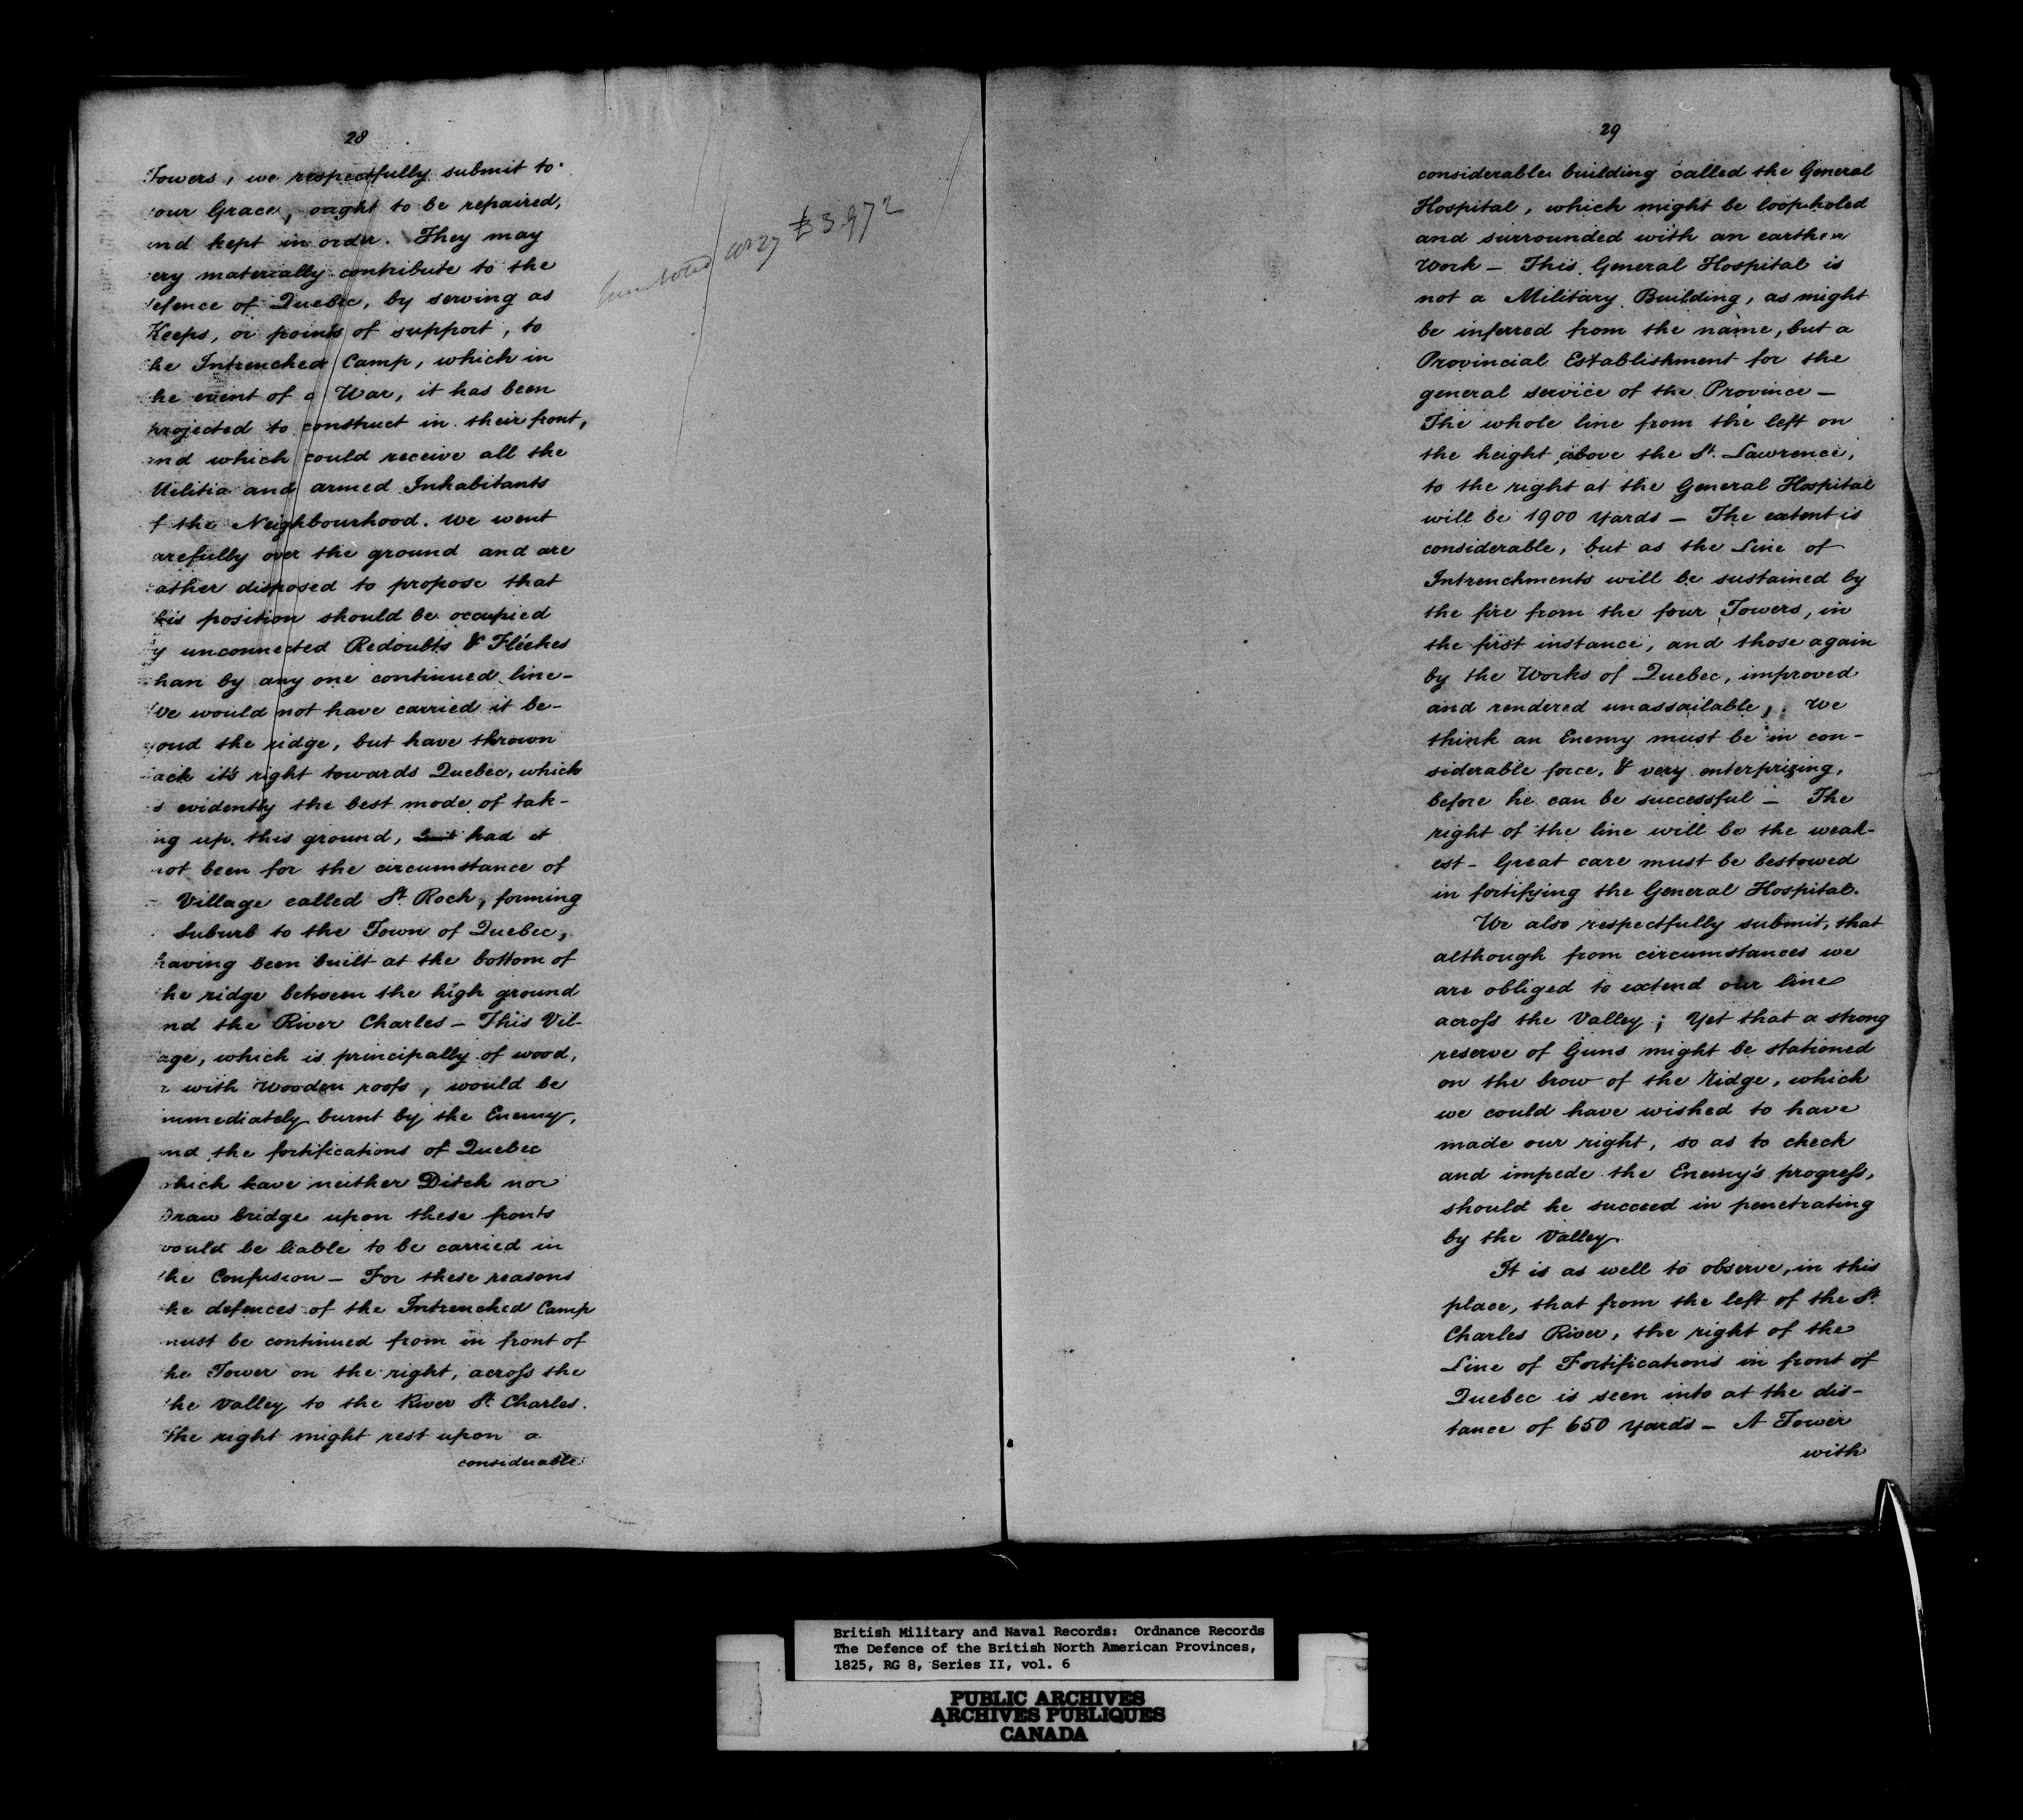 28
Towers, we respectfully submit to
our Grace, ought to be repaired,
nd kept in order. They may
ery materially contribute to the
efence of Quebec, by serving as
Keeps, or points of support, to
he Intrenched Camp, which in
he event of a War, it has been
projected to construct in their front,
nd which could receive all the
Militia and armed Inhabitants
f the Neighbourhood. We went
arefully over the ground and are
ather disposed to propose that
his position should be occupied
y unconnected Redoubts & Fléches
han by any one continued line-
We would not have carried it be-
ond the ridge, but have thrown
ack it's right towards Quebec, which
s evidently the best mode of tak-
ng up this ground, had it
not been for the circumstance of
Village called St. Roch, forming
Suburb to the Town of Quebec,
having been built at the bottom of
he ridge between the high ground
nd the River Charles - This Vil-
age, which is principally of wood,
with Wooden roofs, would be
mmediately burnt by the Enemy,
nd the fortifications of Quebec
which have neither Ditch nor
Draw bridge upon these fronts
would be liable to be carried in
the Confusion - For these reasons
he defences of the Intrenched Camp
must be continued from in front of
he Tower on the right, across the
the Valley to the River St. Charles.
The right might rest upon a
considerable
£3972
29
considerable building called the General
Hospital, which might be loop-holed
and surrounded with an earthen
Work - This General Hospital is
not a Military Building, as might
be inferred from the name, but a
Provincial Establishment for the
general service of the Province -
The whole line from the left on
the height above the St. Lawrence,
to the right at the General Hospital
will be 1900 Yards - The extent is
considerable, but as the Line of
Intrenchments will be sustained by
the fire from the four Towers, in
the first instance, and those again
by the Works of Quebec, improved
and rendered unassailable, We
think an Enemy must be in con-
siderable force, & very enterprizing,
before he can be successful - The
right of the line will be the weak-
est - Great care must be bestowed
in fortifying the General Hospital.
We also respectfully submit, that
although from circumstances we
are obliged to extend our line
across the Valley; Yet that a strong
reserve of Guns might be stationed
on the brow of the Ridge, which
we could have wished to have
made our right, so as to check
and impede the Enemy's progress,
should he succeed in penetrating
by the Valley.
It is as well to observe, in this
place, that from the left of the St.
Charles River, the right of the
Line of Fortifications in front of
Quebec is seen into at the dis-
tance of 650 Yards - A Tower
with
British Military and Naval Records: Ordnance Records
The Defence of the British North American Provinces,
1825, RG 8, Series II, vol. 6
PUBLIC ARCHIVES
ARCHIVES PUBLIQUES
CANADA